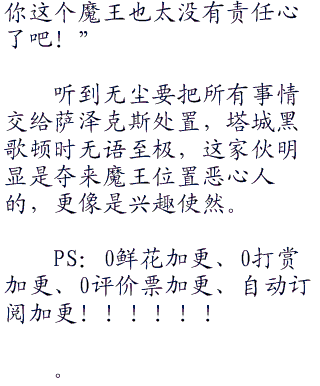 你这个魔王也太没有责任心
了吧！”
听到无尘要把所有事情
交给萨泽克斯处置，塔城黑
歌顿时无语至极，这家伙明
显是夺来魔王位置恶心人
的，更像是兴趣使然。
PS：0鲜花加更、0打赏
加更、0评价票加更、自动订
阅加更！！！！！！
。